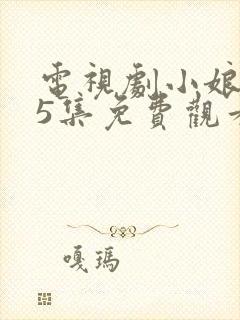 電視劇小娘
5集免費觀看
嘎瑪